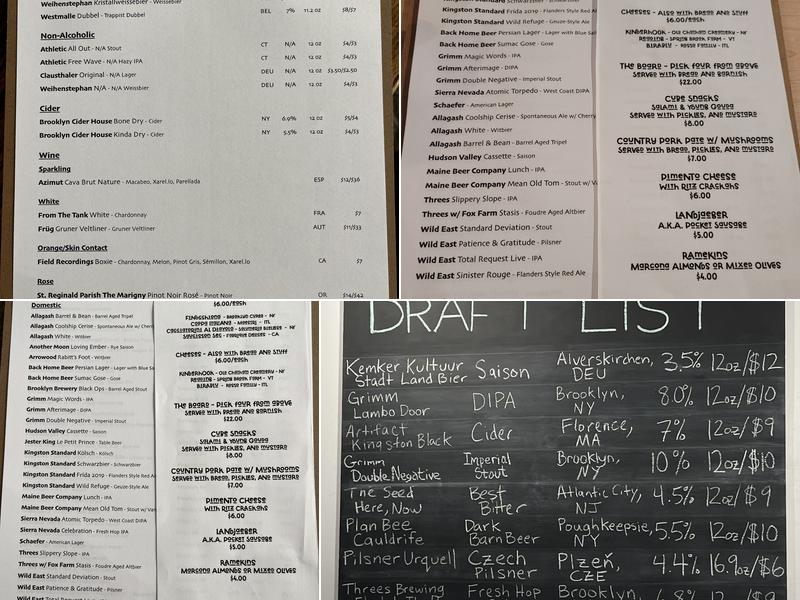 Weihenstephan Kristallweissebier - Weissebier
Westmalle Dubbel - Trappist Dubbel BEL 7% 11.2 OZ $8/$7
Non-Alcoholic
Athletic All Out - N/A Stout CT N/A 12 OZ $4/$3
Athletic Free Wave - N/A Hazy IPA CT N/A 12 OZ $4/$3
Clausthaler Original - N/A Lager DEU N/A 12 OZ $3.50/$2.50
Weihenstephan N/A - N/A Weissbier DEU N/A 12 OZ $4/$3
Cider
Brooklyn Cider House Bone Dry - Cider NY 6.9% 12 OZ $5/$4
Brooklyn Cider House Kinda Dry - Cider NY 5.5% 12 OZ $4/$3
Wine
Sparkling
Azimut Cava Brut Nature - Macabeo, Xarel.lo, Parellada ESP $12/$36
White
From The Tank White - Chardonnay FRA $7
Früg Gruner Veltliner - Gruner Veltliner AUT $11/$33
Orange/Skin Contact
Field Recordings Boxie - Chardonnay, Melon, Pinot Gris, Sémillon, Xarel.lo CA $7
Rose
St. Reginald Parish The Marigny Pinot Noir Rosé - Pinot Noir OR $14/$42
Kingston Standard Schwarzbier - Schwarzbier
Kingston Standard Frida 2019 - Flanders Style Red Al
Kingston Standard Wild Refuge - Geuze-Style Ale
Back Home Beer Persian Lager - Lager with Blue Sal
Back Home Beer Sumac Gose - Gose
Grimm Magic Words - IPA
Grimm Afterimage - DIPA
Grimm Double Negative - Imperial Stout
Sierra Nevada Atomic Torpedo - West Coast DIPA
Schaefer - American Lager
Allagash Coolship Cerise - Spontaneous Ale w/ Cherry
Allagash White - Witbier
Allagash Barrel & Bean - Barrel Aged Tripel
Hudson Valley Cassette - Saison
Maine Beer Company Lunch - IPA
Maine Beer Company Mean Old Tom - Stout w/ V
Threes Slippery Slope - IPA
Threes w/ Fox Farm Stasis - Foudre Aged Altbier
Wild East Standard Deviation - Stout
Wild East Patience & Gratitude - Pilsner
Wild East Total Request Live - IPA
Wild East Sinister Rouge - Flanders Style Red Ale
Cheeses - Also with Bread and Stuff
$6.00/each
Kinderhook - Old Chatham Creamery - NY
Reading - Spring Brook Farm - VT
The Board - Pick four from above
Served with Bread and Garnish
$22.00
Cube Snacks
Salami & Young Gouda
Served with Bread, Pickles, and Mustard
$8.00
Country Pork Pate w/ Mushrooms
Served with Bread, Pickles, and Mustard
$7.00
Pimento Cheese
With Ritz Crackahs
$6.00
Landjaeger
A.K.A. Pocket Sausage
$5.00
Ramekins
Marcona Almonds or Mixed Olives
$4.00
Domestic
Allagash Barrel & Bean - Barrel Aged Tripel
Allagash Coolship Cerise - Spontaneous Ale w/ Cherr
Allagash White - Witbier
Another Moon Loving Ember - Rye Saison
Arrowood Rabbit's Foot - Witbier
Back Home Beer Persian Lager - Lager with Blue Sa
Back Home Beer Sumac Gose - Gose
Brooklyn Brewery Black Ops - Barrel Aged Stout
Grimm Magic Words - IPA
Grimm Afterimage - DIPA
Grimm Double Negative - Imperial Stout
Hudson Valley Cassette - Saison
Jester King Le Petit Prince - Table Beer
Kingston Standard Kölsch - Kölsch
Kingston Standard Schwarzbier - Schwarzbier
Kingston Standard Frida 2019 - Flanders Style Red Al
Kingston Standard Wild Refuge - Geuze-Style Ale
Maine Beer Company Lunch - IPA
Maine Beer Company Mean Old Tom - Stout w/ Van
Sierra Nevada Atomic Torpedo - West Coast DIPA
Sierra Nevada Celebration - Fresh Hop IPA
Schaefer - American Lager
Threes Slippery Slope - IPA
Threes w/ Fox Farm Stasis - Foudre Aged Altbier
Wild East Standard Deviation - Stout
Wild East Patience & Gratitude - Pilsner
Wild East Total Request Live - IPA
$6.00/each
Finocchiona - Brooklyn Cured - NY
Cheeses - Also with Bread and Stuff
$6.00/each
Kinderhook - Old Chatham Creamery - NY
Reading - Spring Brook Farm - VT
The Board - Pick four from above
Served with Bread and Garnish
$22.00
Cube Snacks
Salami & Young Gouda
Served with Bread, Pickles, and Mustard
$8.00
Country Pork Pate w/ Mushrooms
Served with Bread, Pickles, and Mustard
$7.00
Pimento Cheese
With Ritz Crackahs
$6.00
Landjaeger
A.K.A. Pocket Sausage
$5.00
Ramekins
Marcona Almonds or Mixed Olives
$4.00
DRAFT LIST
Kemker Kultuur Stadt Land Bier Saison Alverskirchen, DEU 3.5% 12oz/$12
Grimm Lambo Door DIPA Brooklyn, NY 8.0% 12oz/$10
Artifact Kingston Black Cider Florence, MA 7% 12oz/$9
Grimm Double Negative Imperial Stout Brooklyn, NY 10% 12oz/$10
The Seed Here, Now Best Bitter Atlantic City, NJ 4.5% 12oz/$9
Plan Bee Cauldrife Dark Barn Beer Poughkeepsie, NY 5.5% 12oz/$10
Pilsner Urquell Czech Pilsner Plzeň, CZE 4.4% 16.9oz/$6
Threes Brewing Fresh Hop Brooklyn, 6.8% 12 $9